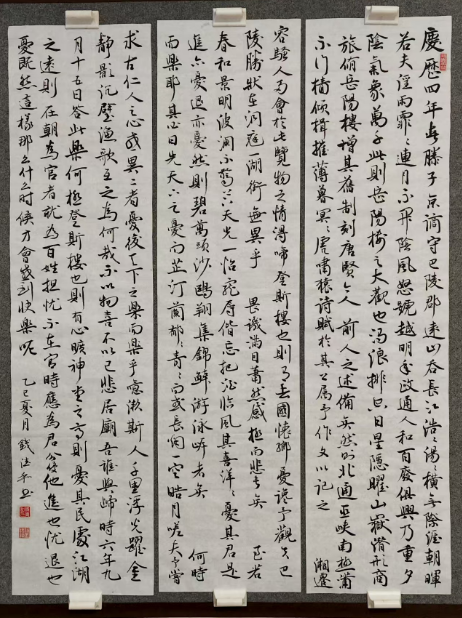 慶歷四年春滕子京謫守巴陵郡遠山吞長江浩浩湯湯橫無際涯朝暉
若夫淫雨霏霏連月不開陰風怒號越明年政通人和百廢俱興乃重夕
陰氣象萬千此則岳陽樓之大觀也濁浪排空日星隱曜山嶽潛形商
旅脩岳陽樓增其舊制刻唐賢今人前人之述備矣然則北通巫峽南極瀟
不行檣傾楫摧薄暮冥冥虎嘯猿詩賦於其上屬予作文以記之 湘遷
客騷人多會於此覽物之情得啼登斯樓也則有去國懷鄉憂讒予觀夫巴
陵勝狀在洞庭湖銜無異乎 畏譏滿目蕭然感極而悲者矣 至若
春和景明波瀾不驚上下天光一怡寵辱偕忘把酒臨風其喜洋洋憂其君是
進亦憂退亦憂然則碧萬頃沙鷗翔集錦鱗游泳岸者矣 何時
而樂耶其必曰先天下之憂而芷汀蘭郁郁青青而或長煙一空皓月嗟夫予嘗
求古仁人之心或異二者憂後天下之樂而樂乎噫微斯人千里浮光躍金
靜影沉璧漁歌互之為何哉不以物喜不以己悲居廟吾誰與歸時六年九
月十五日答此樂何極登斯樓也則有心曠神堂之高則憂其民處江湖
之遠則在朝為官者就為百姓担忧不在官時應為君分忧他進也忧退也
憂既然這樣那么什么時候才會感到快樂呢 乙巳夏月 錢法平書